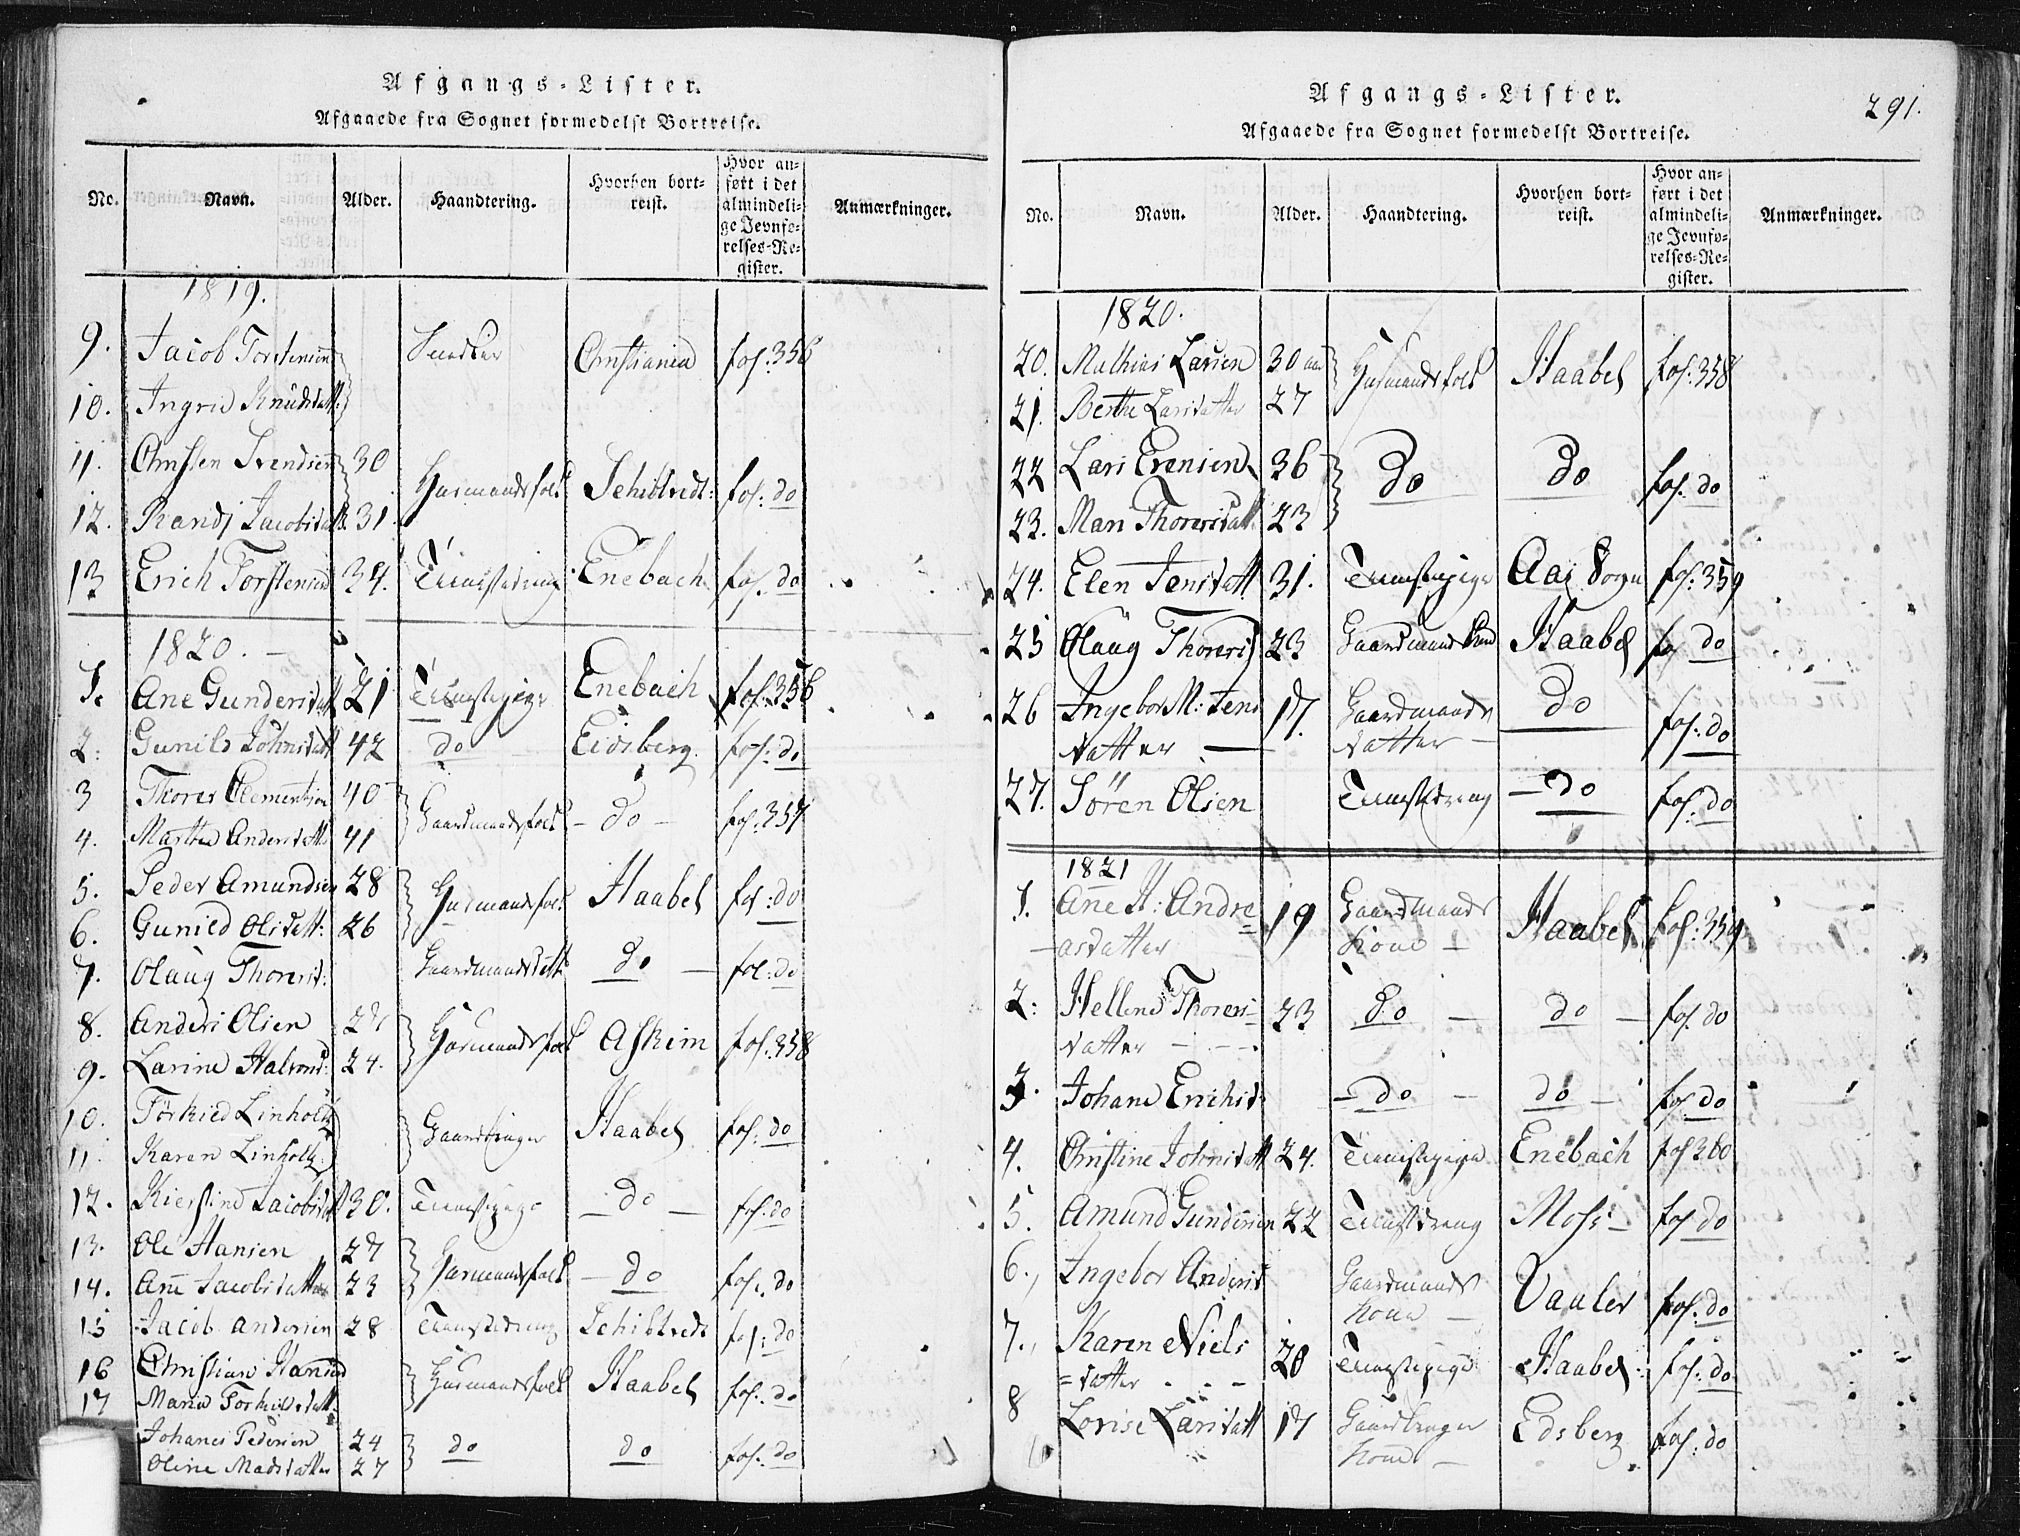 Afgangs-Lister.
Afgaaede fra Sognet formedelst Bortreise.
No. Navn. Alder. Haandtering. Hvorhen bortreist. Hvor anført i det almindelige Jevnførelses-Register. Anmærkninger.
1819.
9. Jacob Torstensen Christiania fol. 356
10. Ingrid Knudsdatt:
11. Christen Svendsen 30 Huusmandsfolk Schibtvedt: fol: do
12. Randj Jacobsdatt 31.
13 Erich Torstensen 34. Tienestedreng Enebach fol. do
1820.
1. Ane Gundersdatt 21 Tienestepige Enebach fol. 356
2. Gunild Johnsdatt 42 do Eidsberg. fol: do
3 Thorer Clementsen 40 Gaardmandsfolk - do - fol. 357
4. Marthe Andersdatt: 41
5. Peder Amundsen 28 Huusmandsfolk Haabel fol: do
6. Gunild Olsdatt: 26
7. Olaug Thorersd: Gaardmandsdatt do fol: do
8. Anders Olsen 27 Huusmandsfolk Askim fol. 358
9. Larine Halvorsd: 24.
10. Torkild Linholt Gaardbruger Haabel fol. do
11. Karen Linholt
12. Kierstine Jacobsdatt 30. Tienestepige - do - fol. do
13. Ole Hansen 27 Huusmandsfolk - do fol. do
14. Ane Jacobsdatter 23
15 Jacob Andersen 28 Tienestedreng Schibtvedt fol: do
16 Christian Hansen Huusmandsfolk Haabel fol. do
17 Maria Torkildsdatt:
Johanes Pedersen 24 do do fol. do
Oline Madsdatter 27
Afgangs-Lister.
291.
Afgaaede fra Sognet formedelst Bortreise.
No. Navn. Alder. Haandtering. Hvorhen bortreist. Hvor anført i det almindelige Jevnførelses-Register. Anmærkninger.
1820.
20. Mathias Larsen 30 aar Huusmandsfolk Haabel fol: 358
21. Berthe Larsdatter 27
22 Lars Evensen 36 do do fol. do
23. Mari Thorersdatt 23
24. Elen Jensdatt 31. Tienestepige Aas Sogn fol. 359
25 Olaug Thorersd 23 Gaardmands Haabel fol do
26 Ingebor M: Jens 17. Gaardmands do fol: do
datter — datter —
27. Søren Olsen Tienestedreng - do fol: do
1821
1. Ane H: Andre 19 Gaardmands Haabel fol. 359
asdatter Kone -
2: Hellene Thorers 23 do - do - fol. do
datter - - -
3. Johane Erichsd: - do - do - fol do
4. Christine Johnsdatt 24. Tienestepige Enebach fol 360
5. Amund Gundersen 22 Tienestdreng Moss - fol. do
6. Ingebor Andersd Gaardmands Vaaler fol. do
Kone -
7. Karen Niels 20 Tienestepige Haabel: fol: do
=datter - - -
8 Lovise Larsdatt 17 Gaardbruger Edsberg fol. do
Kone -